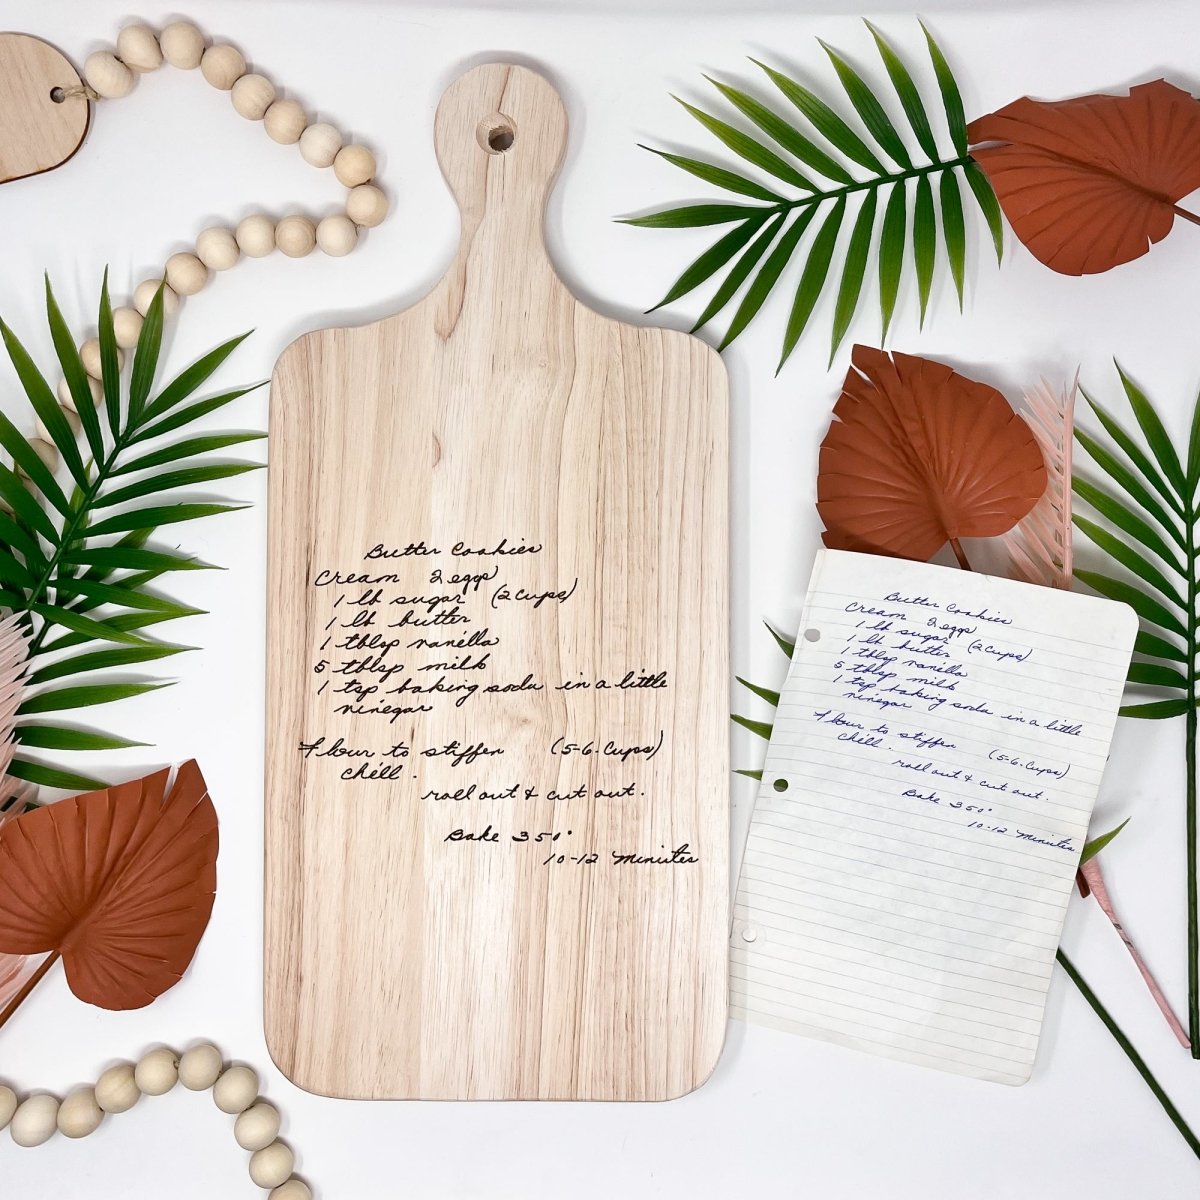 Butter Cookies
Cream 2 eggs
1 lb sugar (2 Cups)
1 lb butter
1 tblsp vanilla
5 tblsp milk
1 tsp baking soda in a little
vinegar
Flour to stiffen (5-6-Cups)
chill.
roll out & cut out.
Bake 350°
10-12 Minutes
Butter Cookies
Cream 2 eggs
1 lb sugar (2 Cups)
1 lb butter
1 tblsp vanilla
5 tblsp milk
1 tsp baking soda in a little
vinegar
Flour to stiffen (5-6-Cups)
chill.
roll out & cut out.
Bake 350°
10-12 Minutes